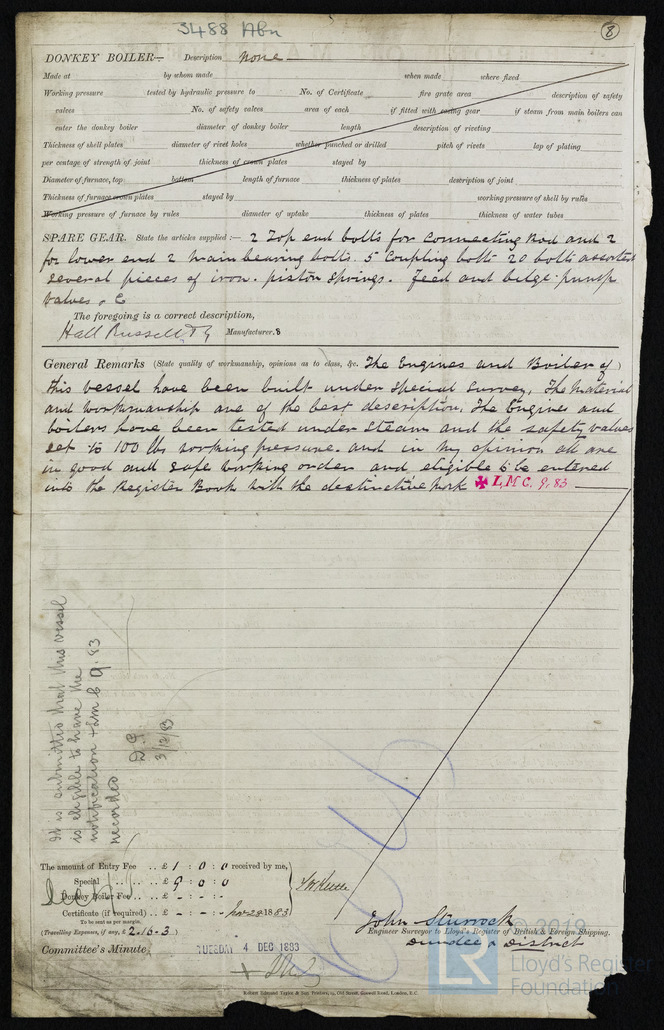 3488 Abn
8
DONKEY BOILER— Description none
Made at by whom made when made where fixed
Working pressure tested by hydraulic pressure to No. of Certificate fire grate area description of safety
valves No. of safety valves area of each if fitted with easing gear if steam from main boilers can
enter the donkey boiler diameter of donkey boiler length description of riveting
Thickness of shell plates diameter of rivet holes whether punched or drilled pitch of rivets lap of plating
per centage of strength of joint thickness of crown plates stayed by
Diameter of furnace, top bottom length of furnace thickness of plates description of joint
Thickness of furnace crown plates stayed by working pressure of shell by rules
Working pressure of furnace by rules diameter of uptake thickness of plates thickness of water tubes
SPARE GEAR. State the articles supplied:— 2 Top end bolts for Connecting Rod and 2
for lower end 2 main bearing bolts. 5 Coupling bolts 20 bolts assorted
several pieces of iron. piston springs. Feed and bilge pump
valves &c
The foregoing is a correct description,
Hall Russell & Co Manufacturer.
General Remarks (State quality of workmanship, opinions as to class, &c. The Engines and Boiler of
this vessel have been built under special survey, The Material
and workmanship are of the best description. The Engines and
boilers have been tested under steam and the safety valves
set to 100 lbs working pressure. and in my opinion all are
in good and safe working order and eligible to be entered
into the Register Book with the distinctive Mark ✠ L.M.C. 9.83
It is submitted that this vessel
is eligible to have the
notification + LMC 9.83
recorded
3/12/83
The amount of Entry Fee .. £ 1 : 0 : 0 received by me,
Special .. .. £ 9 : 0 : 0
Donkey Boiler Fee .. .. £ - : - : -
Certificate (if required) .. £ - : - : - Nov 28 1883
To be sent as per margin.
(Travelling Expenses, if any, £ 2-16-3)
John Sturrock
Engineer Surveyor to Lloyd's Register of British & Foreign Shipping.
Dundee & District
Committee's Minute
TUESDAY 4 DEC 1883
Robert Edmund Taylor & Son, Printers, 19, Old Street, Goswell Road, London, E.C.
© 2019
LR
Lloyd's Register
Foundation